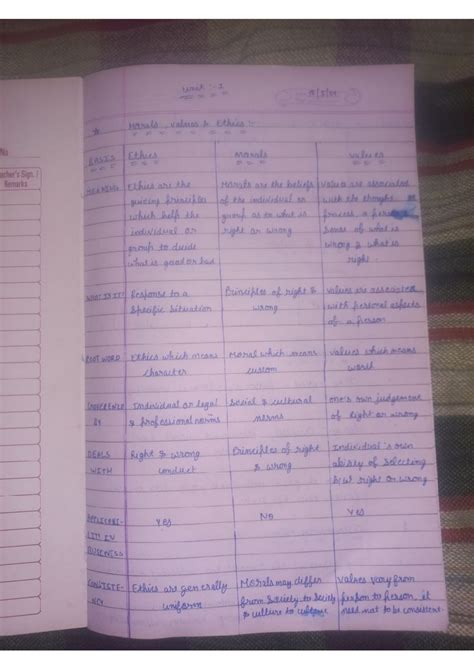 Unit :- 1
Morals, Values & Ethics :-
BASIS Ethics Morals Values
MEANING Ethics are the Morals are the beliefs Values are associated
guiding principles of the individual or with the thought
which help the group as on what is process a person's
individual or right or wrong sense of what is
group to decide wrong & what is
what is good or bad right.
WHAT IS IT? Response to a Principles of right & Values are associated
specific situation wrong with personal aspects
of a person
ROOT WORD Ethics which means Moral which means Values which means
character custom worth
GOVERNANCE Individual or legal Social & cultural one's own judgement
BY & professional norms norms of Right or wrong
DEALS Right & wrong Principles of right Individual's own
WITH conduct & wrong ability of selecting
right or wrong
APPLICABI- Yes No Yes
LITY IN
BUSINESS
CONSISTE- Ethics are generally Morals may differ Values vary from
NCY uniform from society to society person to person, it
& culture to culture need not to be consistent.
No
acher's Sign. /
Remarks